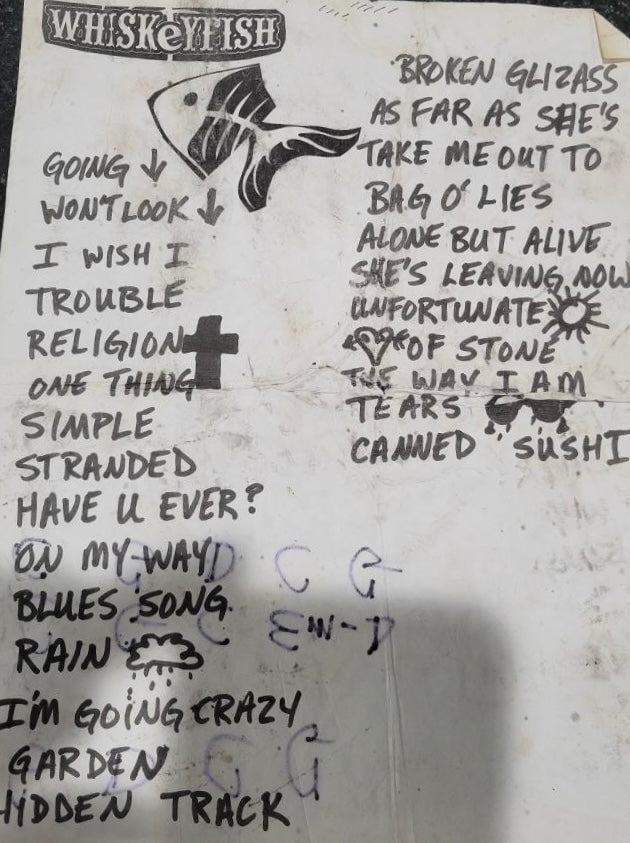 WHISKeYFISH
GOING ↓
WON'T LOOK ↓
I WISH I
TROUBLE
RELIGION
ONE THING
SIMPLE
STRANDED
HAVE U EVER?
ON MY WAY
BLUES SONG
RAIN
I'M GOING CRAZY
GARDEN
HIDDEN TRACK
BROKEN GLIZASS
AS FAR AS SHE'S
TAKE ME OUT TO
BAG O' LIES
ALONE BUT ALIVE
SHE'S LEAVING NOW
UNFORTUNATE
OF STONE
THE WAY I AM
TEARS
CANNED SUSHI
D C G
G C Em-D
D C G